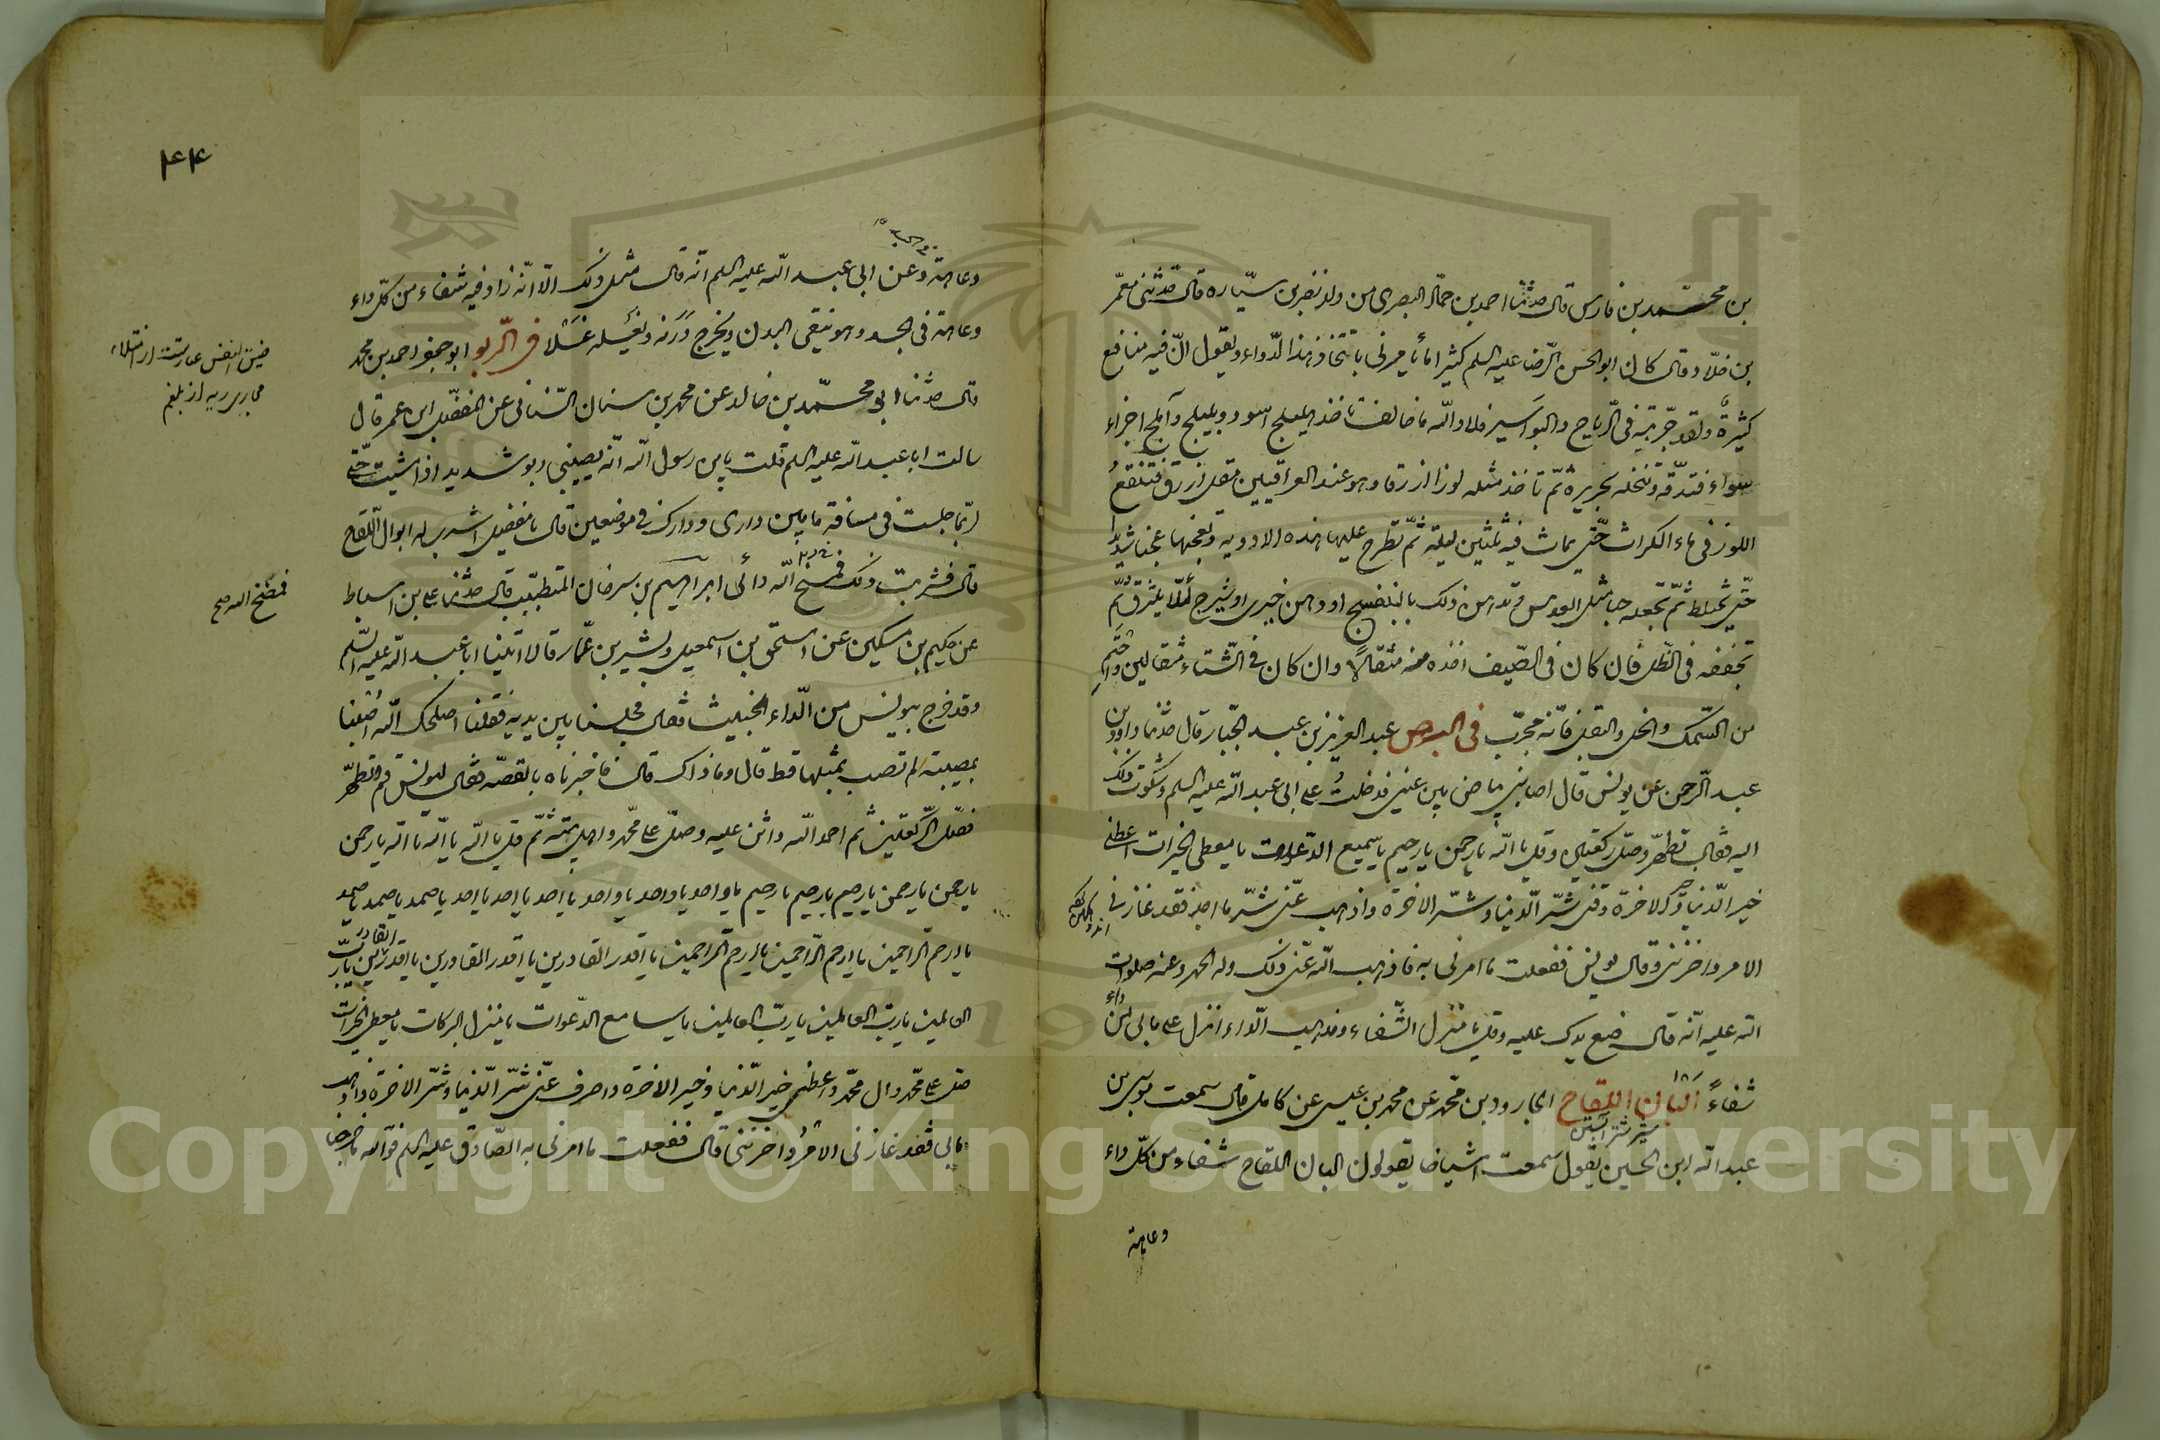 بن محمد بن فارس قال حدثنا احمد بن حماد البصرى من ولد نضر بن سيّاره قال حدثنى معمّر
بن خلاد قال كان ابو الحسن الرّضا عليه السلم كثيرا ما يأمرنى باتّخاذ هذا الدّواء ويقول انّ فيه منافع
كثيرة ولقد جرّبته فى الرياح والبواسير فلا والله ما خالف تأخذ هليلج اسود وبليلج وآملج اجزاء
سواء فتدقّه وتنخله بحريره ثمّ تأخذ مثله لوزا ازرقا وهو عند العراقيين مقل ازرق فتنقع
اللوز فى ماء الكراث حتّى يماث فيه ثلثين ليلة ثمّ تطرح عليها هذه الادويه وتعجنها عجنا شديدا
حتّى يختلط ثمّ تجعله حبا مثل العدس وتدهن يدك بالبنفسج او دهن خيرى او شيرج لئلّا يلتزق ثمّ
تجففه فى الظل فان كان فى الصّيف اخذه منه مثقالا وان كان فى الشّتاء مثقالين واحتم
من السّمك والخل والبقل فانّه مجرّب فى البرص عبد العزيز بن عبد الجبّار قال حدثنا داود بن
عبد الرّحمن عن يونس قال اصابنى بياض بين عينى فدخلتُ على ابى عبد الله عليه السلم وشكوت ذلك
اليه فقال تطهّر وصلّ ركعتين وقل يا الله يا رحمن يا رحيم يا سميع الدّعوات يا معطى الخيرات اعطنى
خير الدّنيا وخير الاخرة وقنى شرّ الدّنيا وشرّ الاخرة واذهب عنّى شرّ ما اجد فقد غاظنى
الامر واحزننى وقال يونس ففعلت ما امرنى به فاذهب الله عنّى ذلك وله الحمد وعنه صلوات
الله عليه انّه قال ضع يدك عليه وقل يا منزل الشّفاء ومذهب الدّاء انزل على ما بى من داء
شفاءً البان اللقاح الجارود بن محمّد عن محمد بن عيسى عن كامل قال سمعت موسى بن
شير شتر آبستن
عبد الله ابن الحسين يقول سمعت اشياخنا يقولون البان اللقاح شفاء من كلّ داء
وعاهة
۴۴
وعاهة وعن ابى عبد الله عليه السلم انّه قال مثل ذلك الّا انّه زاد فيه شفاء من كلّ داء
وعاهة فى الجسد وهو ينقى البدن ويخرج دَرَنه ويغسله غسْلا فى الرّبو ابو جعفر احمد بن محمد
ضيق النفس عبارتست از امتلاء
مجارى ريه از بلغم
قال حدثنا ابى محمّد بن خالد عن محمد بن سنان السّنانى عن المفضّل ابن عمر قال
سالت ابا عبد الله عليه السلم قلت يا بن رسول الله انّه يصيبنى ربو شديد اذا مشيت حتّى
لربّما جلست فى مسافة ما بين دارى ودارك فى موضعين قال يا مفضّل اشرب له ابوال اللّقاح
قال فشربت ذلك فمسح الله دائى ابراهيم بن سرحان المتطبّب قال حدثنا على بن اسباط
فمسح الله صح
عن حكيم بن مسكين عن اسحق بن اسمعيل وبشير بن عمّار قالا اتينا ابا عبد الله عليه السّلم
وقد خرج بيونس من الدّاء الخبيث فقال فجلسنا بين يديه فقلنا اصلحك الله اصبنا
بمصيبة لم نصب بمثلها قط قال وما ذاك قال فاخبرناه بالقصّه فقال ليونس قم وتطهّر
فصلّ الرّكعتين ثم احمد الله واثن عليه وصلّ على محمّد واهل بيته ثمّ قل يا الله يا الله يا الله يا رحمن
يا رحمن يا رحمن يا رحيم يا رحيم يا رحيم يا واحد يا واحد يا واحد يا احد يا احد يا احد يا صمد يا صمد يا صمد
يا ارحم الرّاحمين يا ارحم الرّاحمين يا ارحم الرّاحمين يا اقدر القادرين يا اقدر القادرين يا اقدر القادرين يا ربّ
العالمين يا ربّ العالمين يا ربّ العالمين يا سامع الدّعوات يا منزل البركات يا معطى الخيرات
صلّ على محمّد وال محمّد واعطنى خير الدّنيا وخير الاخرة واصرف عنّى شرّ الدّنيا وشرّ الاخرة واذهب
ما بى فقد غاظنى الامرُ واحزننى قال ففعلت ما امرنى به الصّادق عليه السلم فوالله ما خرجنا
Copyright © King Saud University